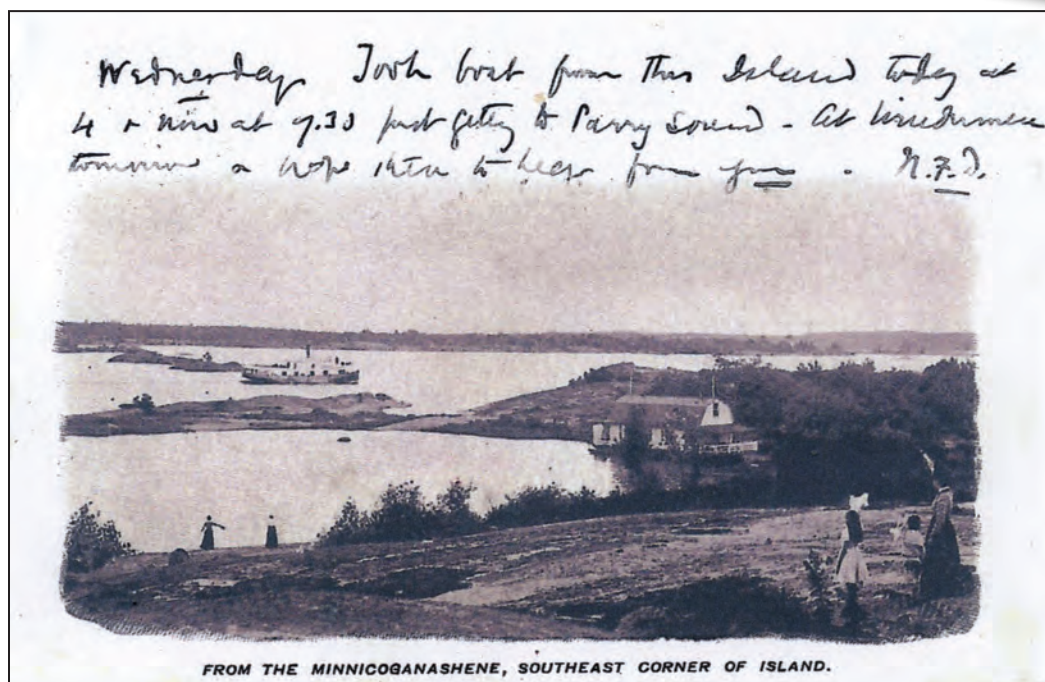 Wednesday Took boat from this Island today at
4 + now at 7.30 just getting to Parry Sound - At
tomorrow & hope then to hear from you. N.F.D.
FROM THE MINNICOGANASHENE, SOUTHEAST CORNER OF ISLAND.